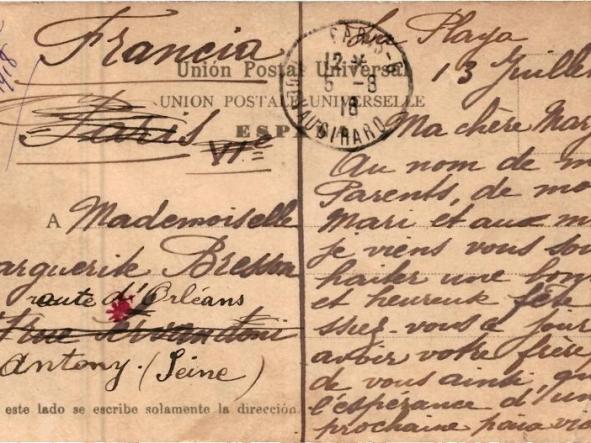 Francia
Unión Postal Universal
UNION POSTALE UNIVERSELLE
ESP
Paris
VIe
A Mademoiselle
arguerite Bressa
route d'Orléans
rue Servandoni
Antony (Seine)
este lado se escribe solamente la dirección
PARIS
12
5-8
18
VAUGIRARD
La Playa
13 Juille
Ma chère Marg
Au nom de m
Parents, de mo
Mari et aux m
je viens vous sou
haiter une bon
et heureuse fête
vous ce jour
avoir votre frère
de vous ainsi, qu
l'espérance d'un
prochaine paix